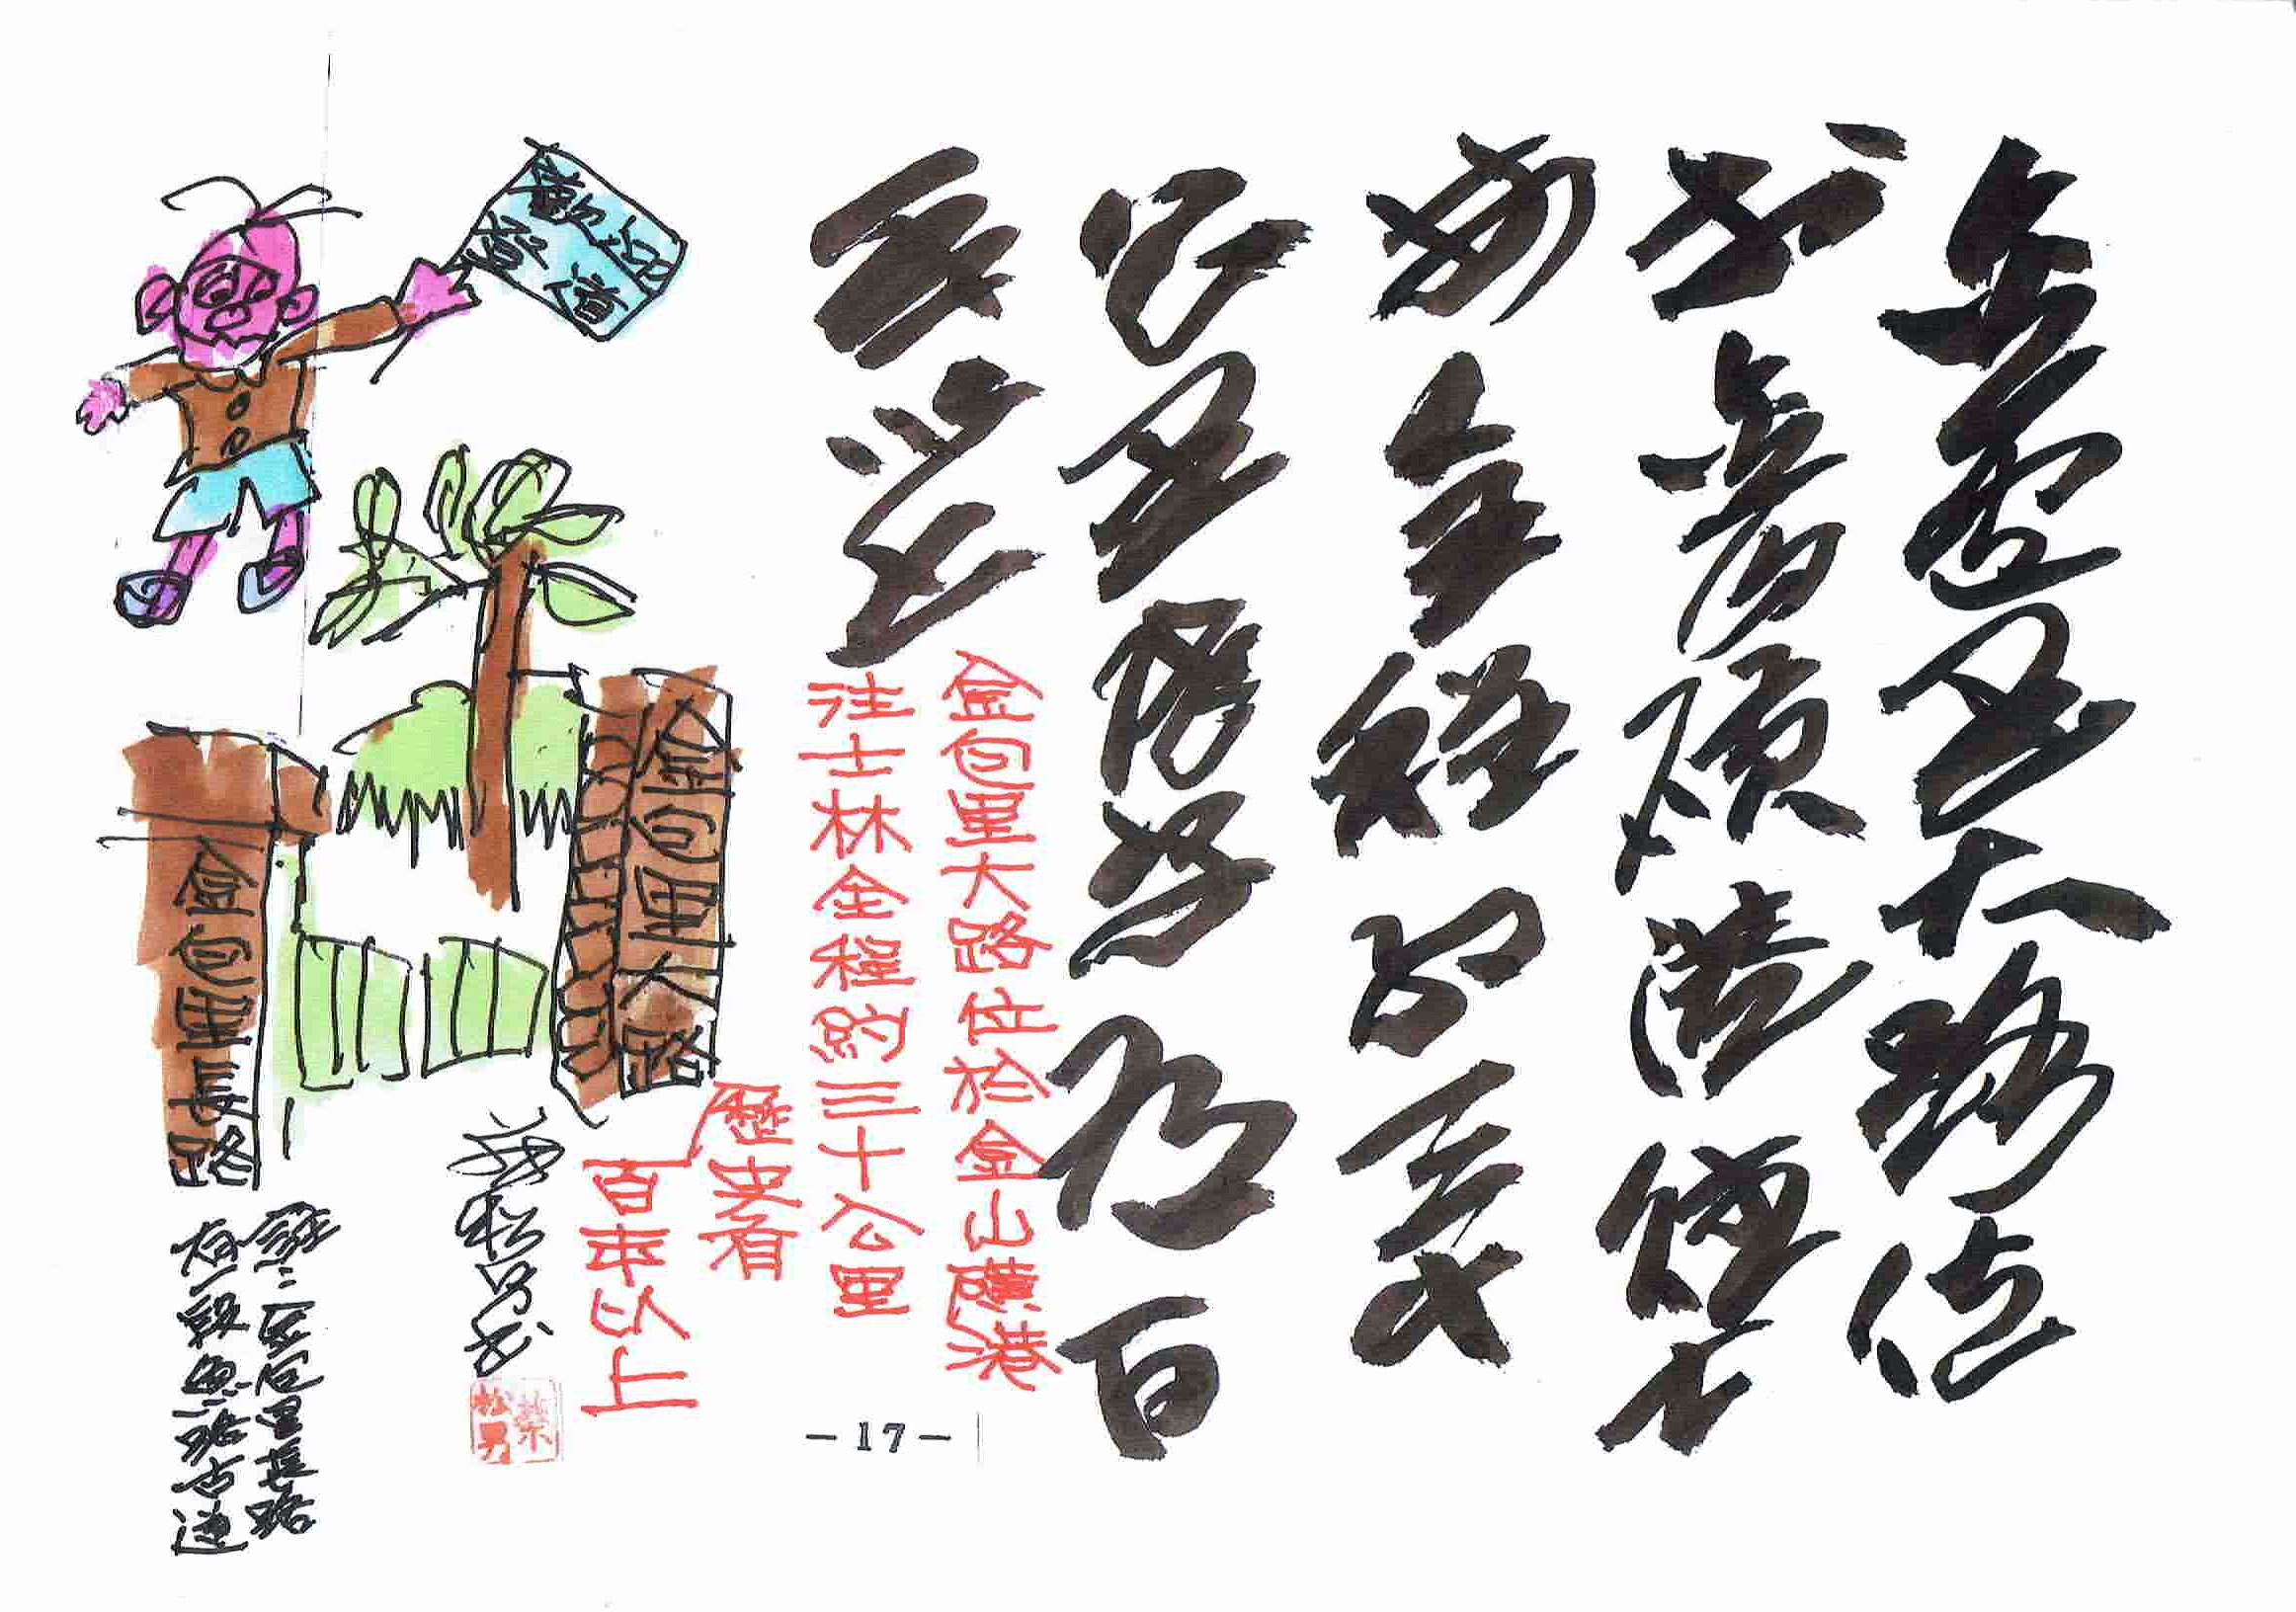 金包里大路位
於金山磺港經士
林全程約三十
公里歷史有百
年以上
金包里大路位於金山磺港
往士林全程約三十公里
歷史有
百年以上
歡迎
金包里大路
金包里長路
松男
金包里長路
有一段魚路古道
- 17 -